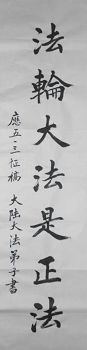 法輪大法是正法
應五·三征稿 大陸大法弟子書